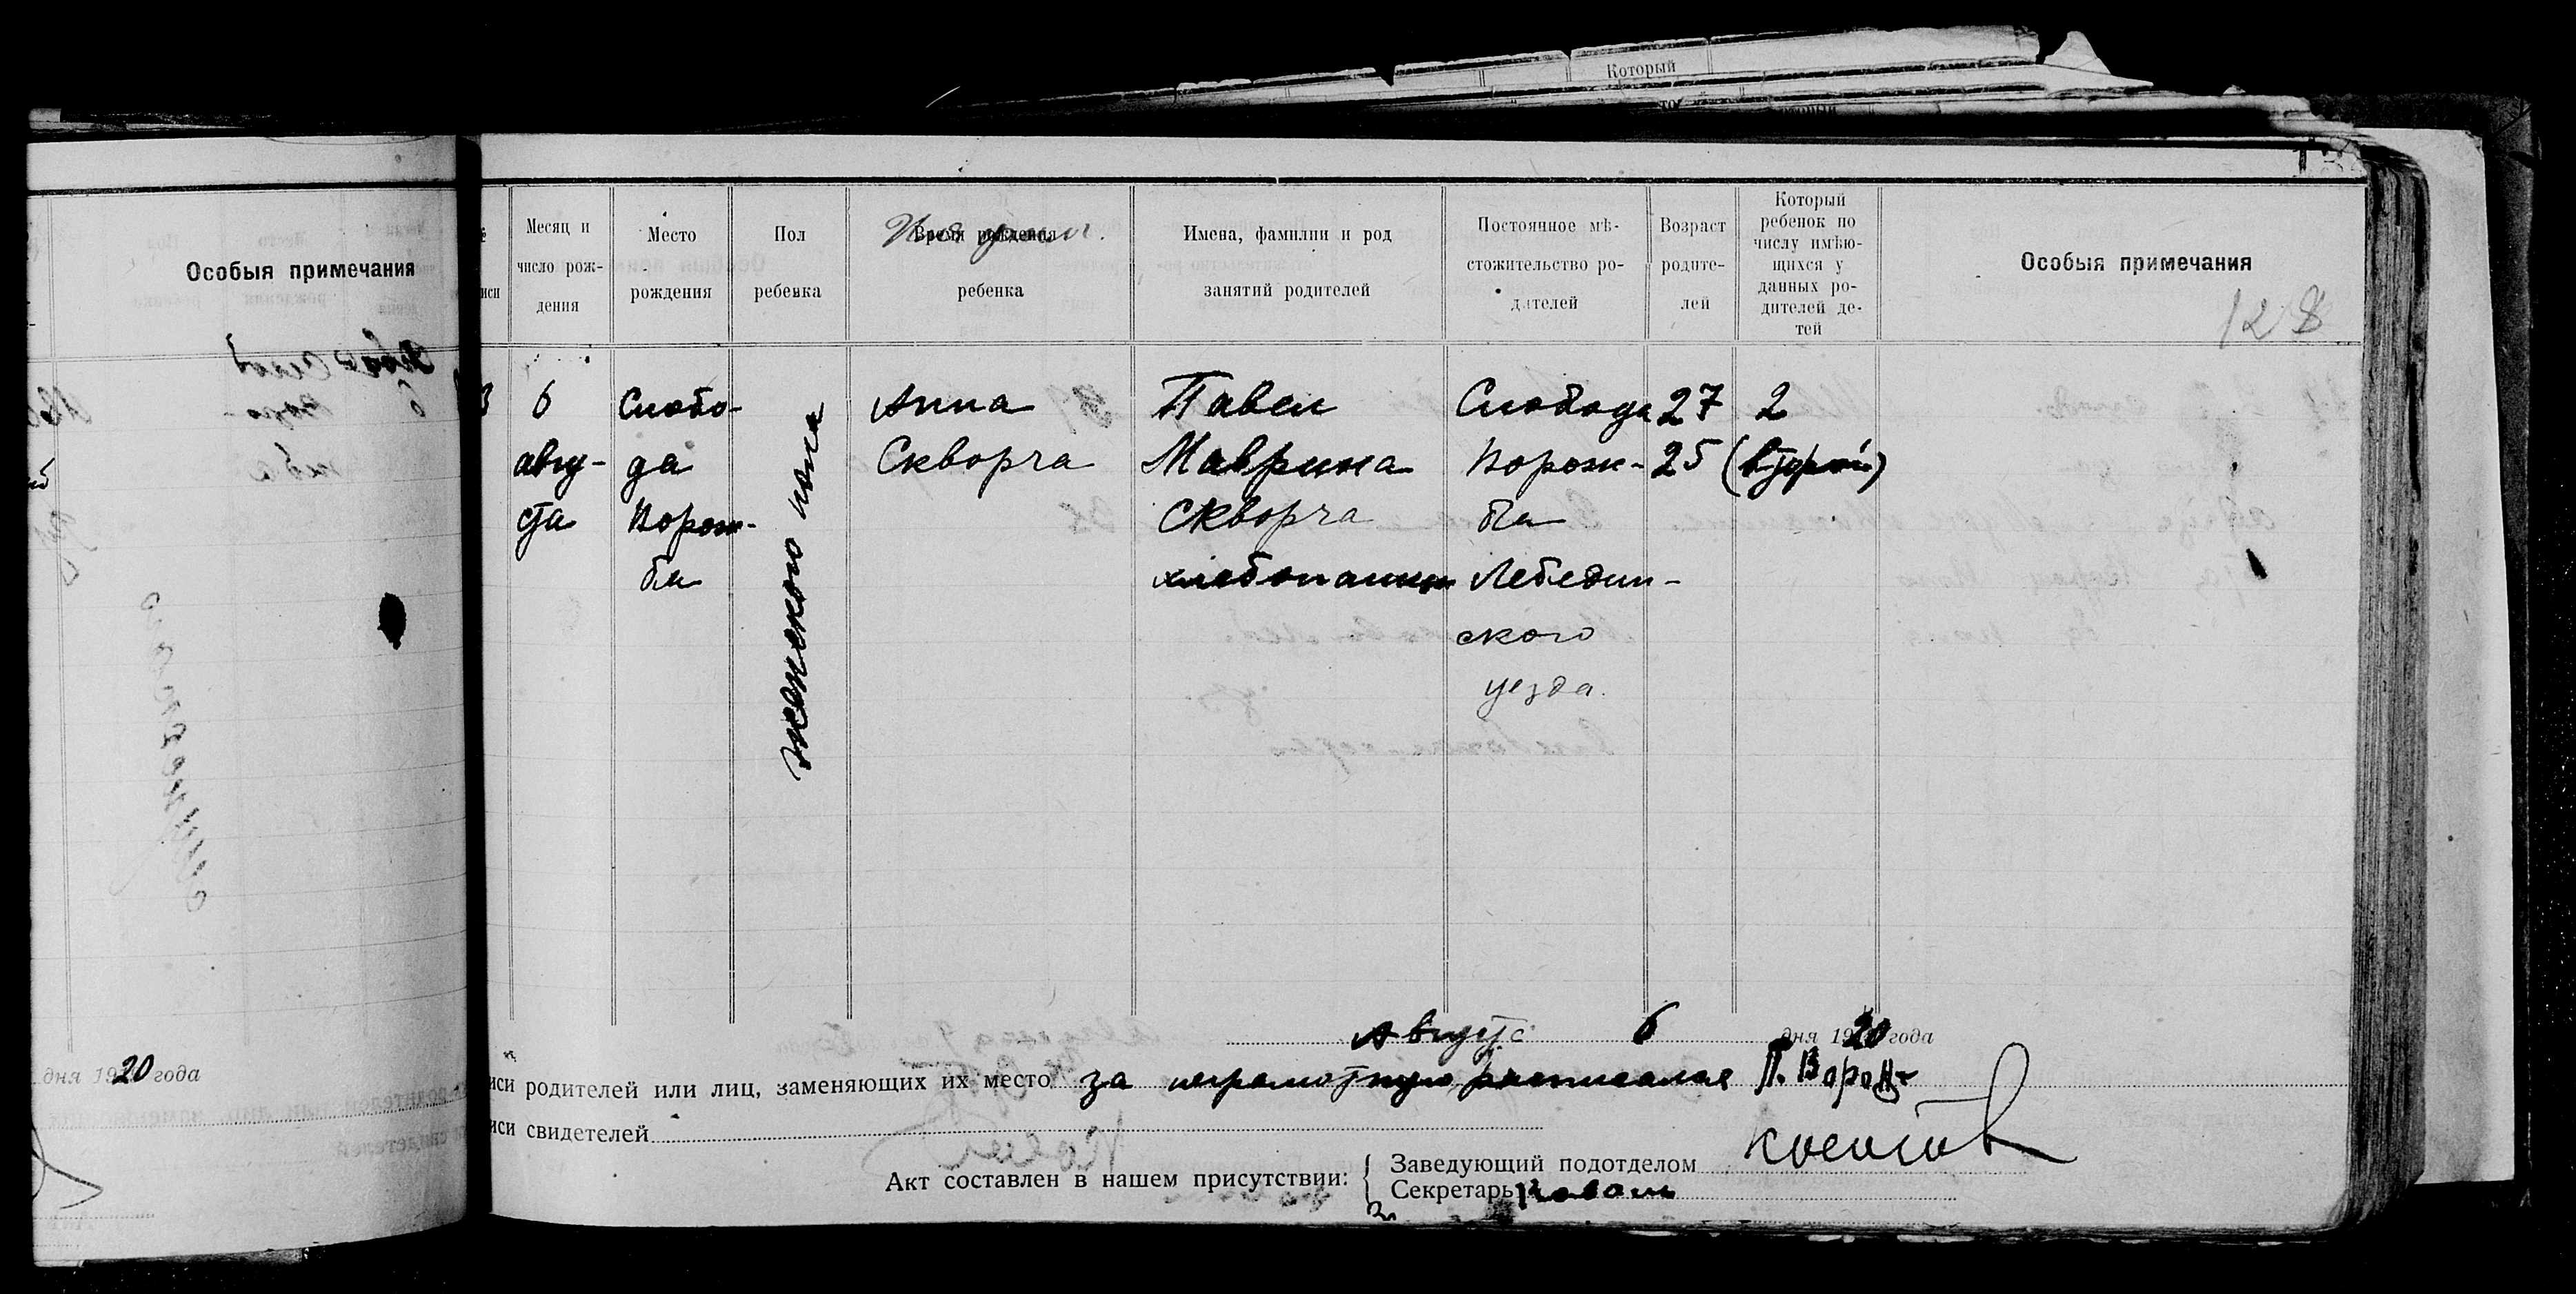 Который
Особыя примечания
дня 1920 года
Месяц и число рождения
Место рождения
Пол ребенка
Время рождения ребенка
Имена, фамилии и род занятий родителей
Постоянное мѣстожительство родителей
Возраст родителей
Который ребенок по числу имѣющихся у данных родителей детей
Особыя примечания
128
3 6 Слобо- Анна Павел Слобода 27 2
авгу- да Скворча Маврина Ворож- 25 (второй)
ста Ворож- Скворча ба
бы хлебопашцы Лебедин-
ского
уезда.
женского пола
Августа 6 дня 1920 года
иси родителей или лиц, заменяющих их место за неграмотную расписался П. Вороп
иси свидетелей
Акт составлен в нашем присутствии:
Заведующий подотделом
Секретарь